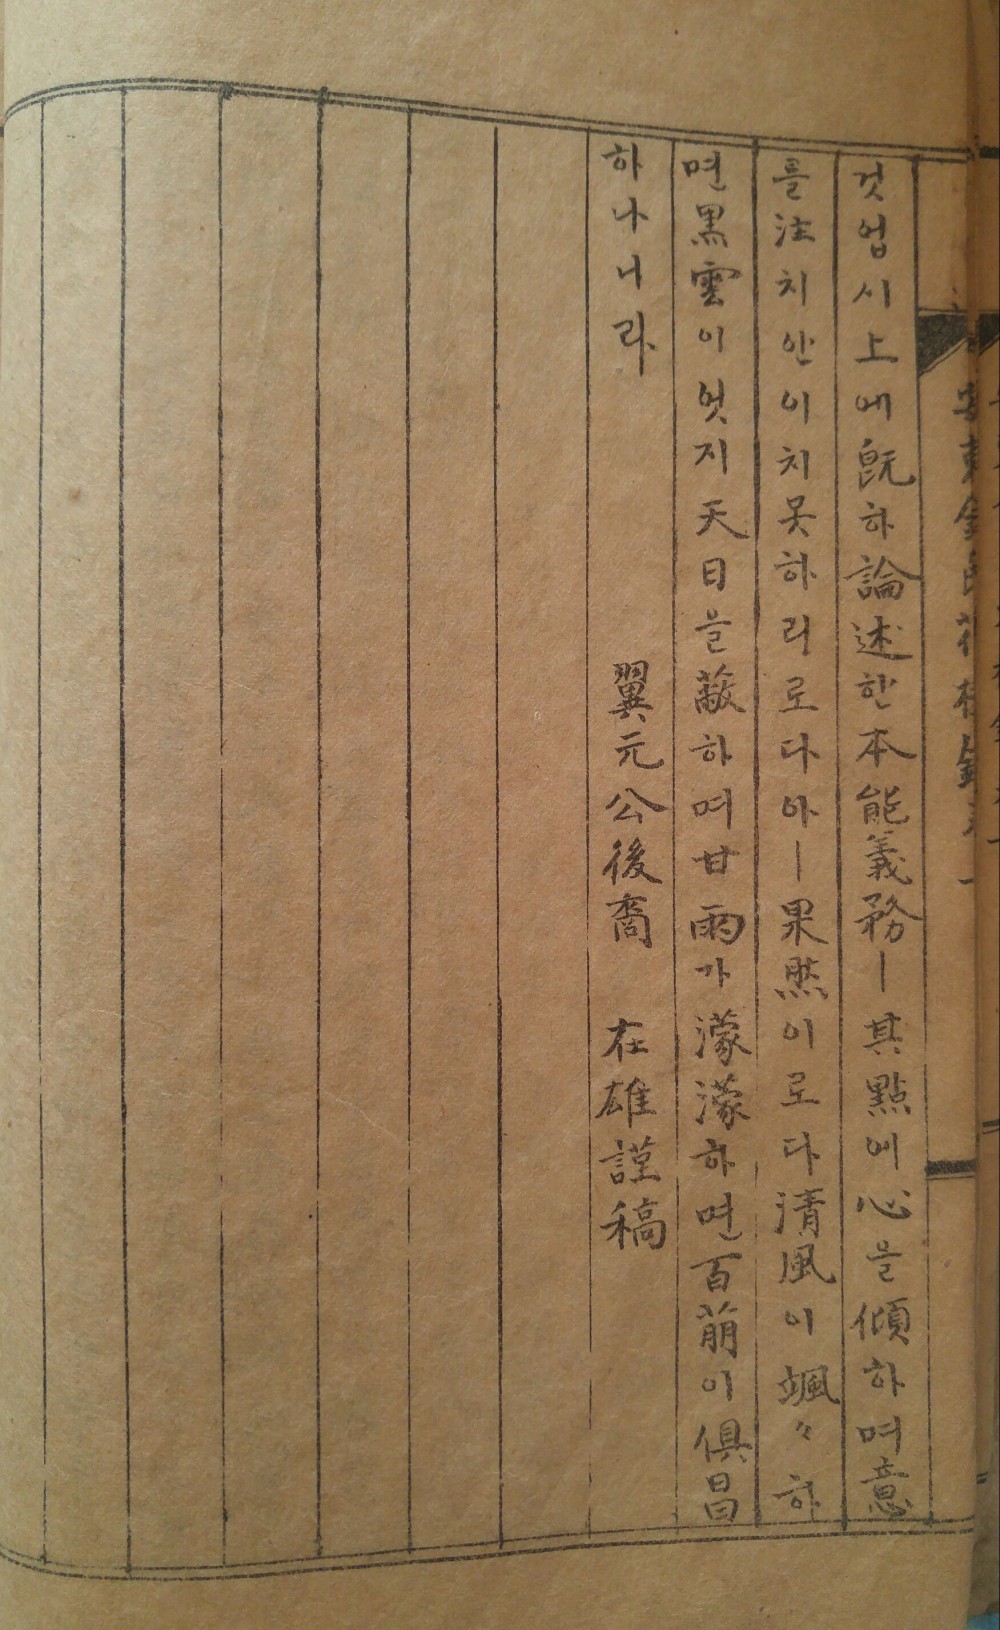 것업시上에旣하論述한本能義務ㅣ其點에心을傾하며意
를注치안이치못하리로다아ㅣ果然이로다淸風이颯々하
면黑雲이엇지天日을蔽하며甘雨가濛濛하면百萠이俱昌
하나니라 翼元公後裔 在雄謹稿